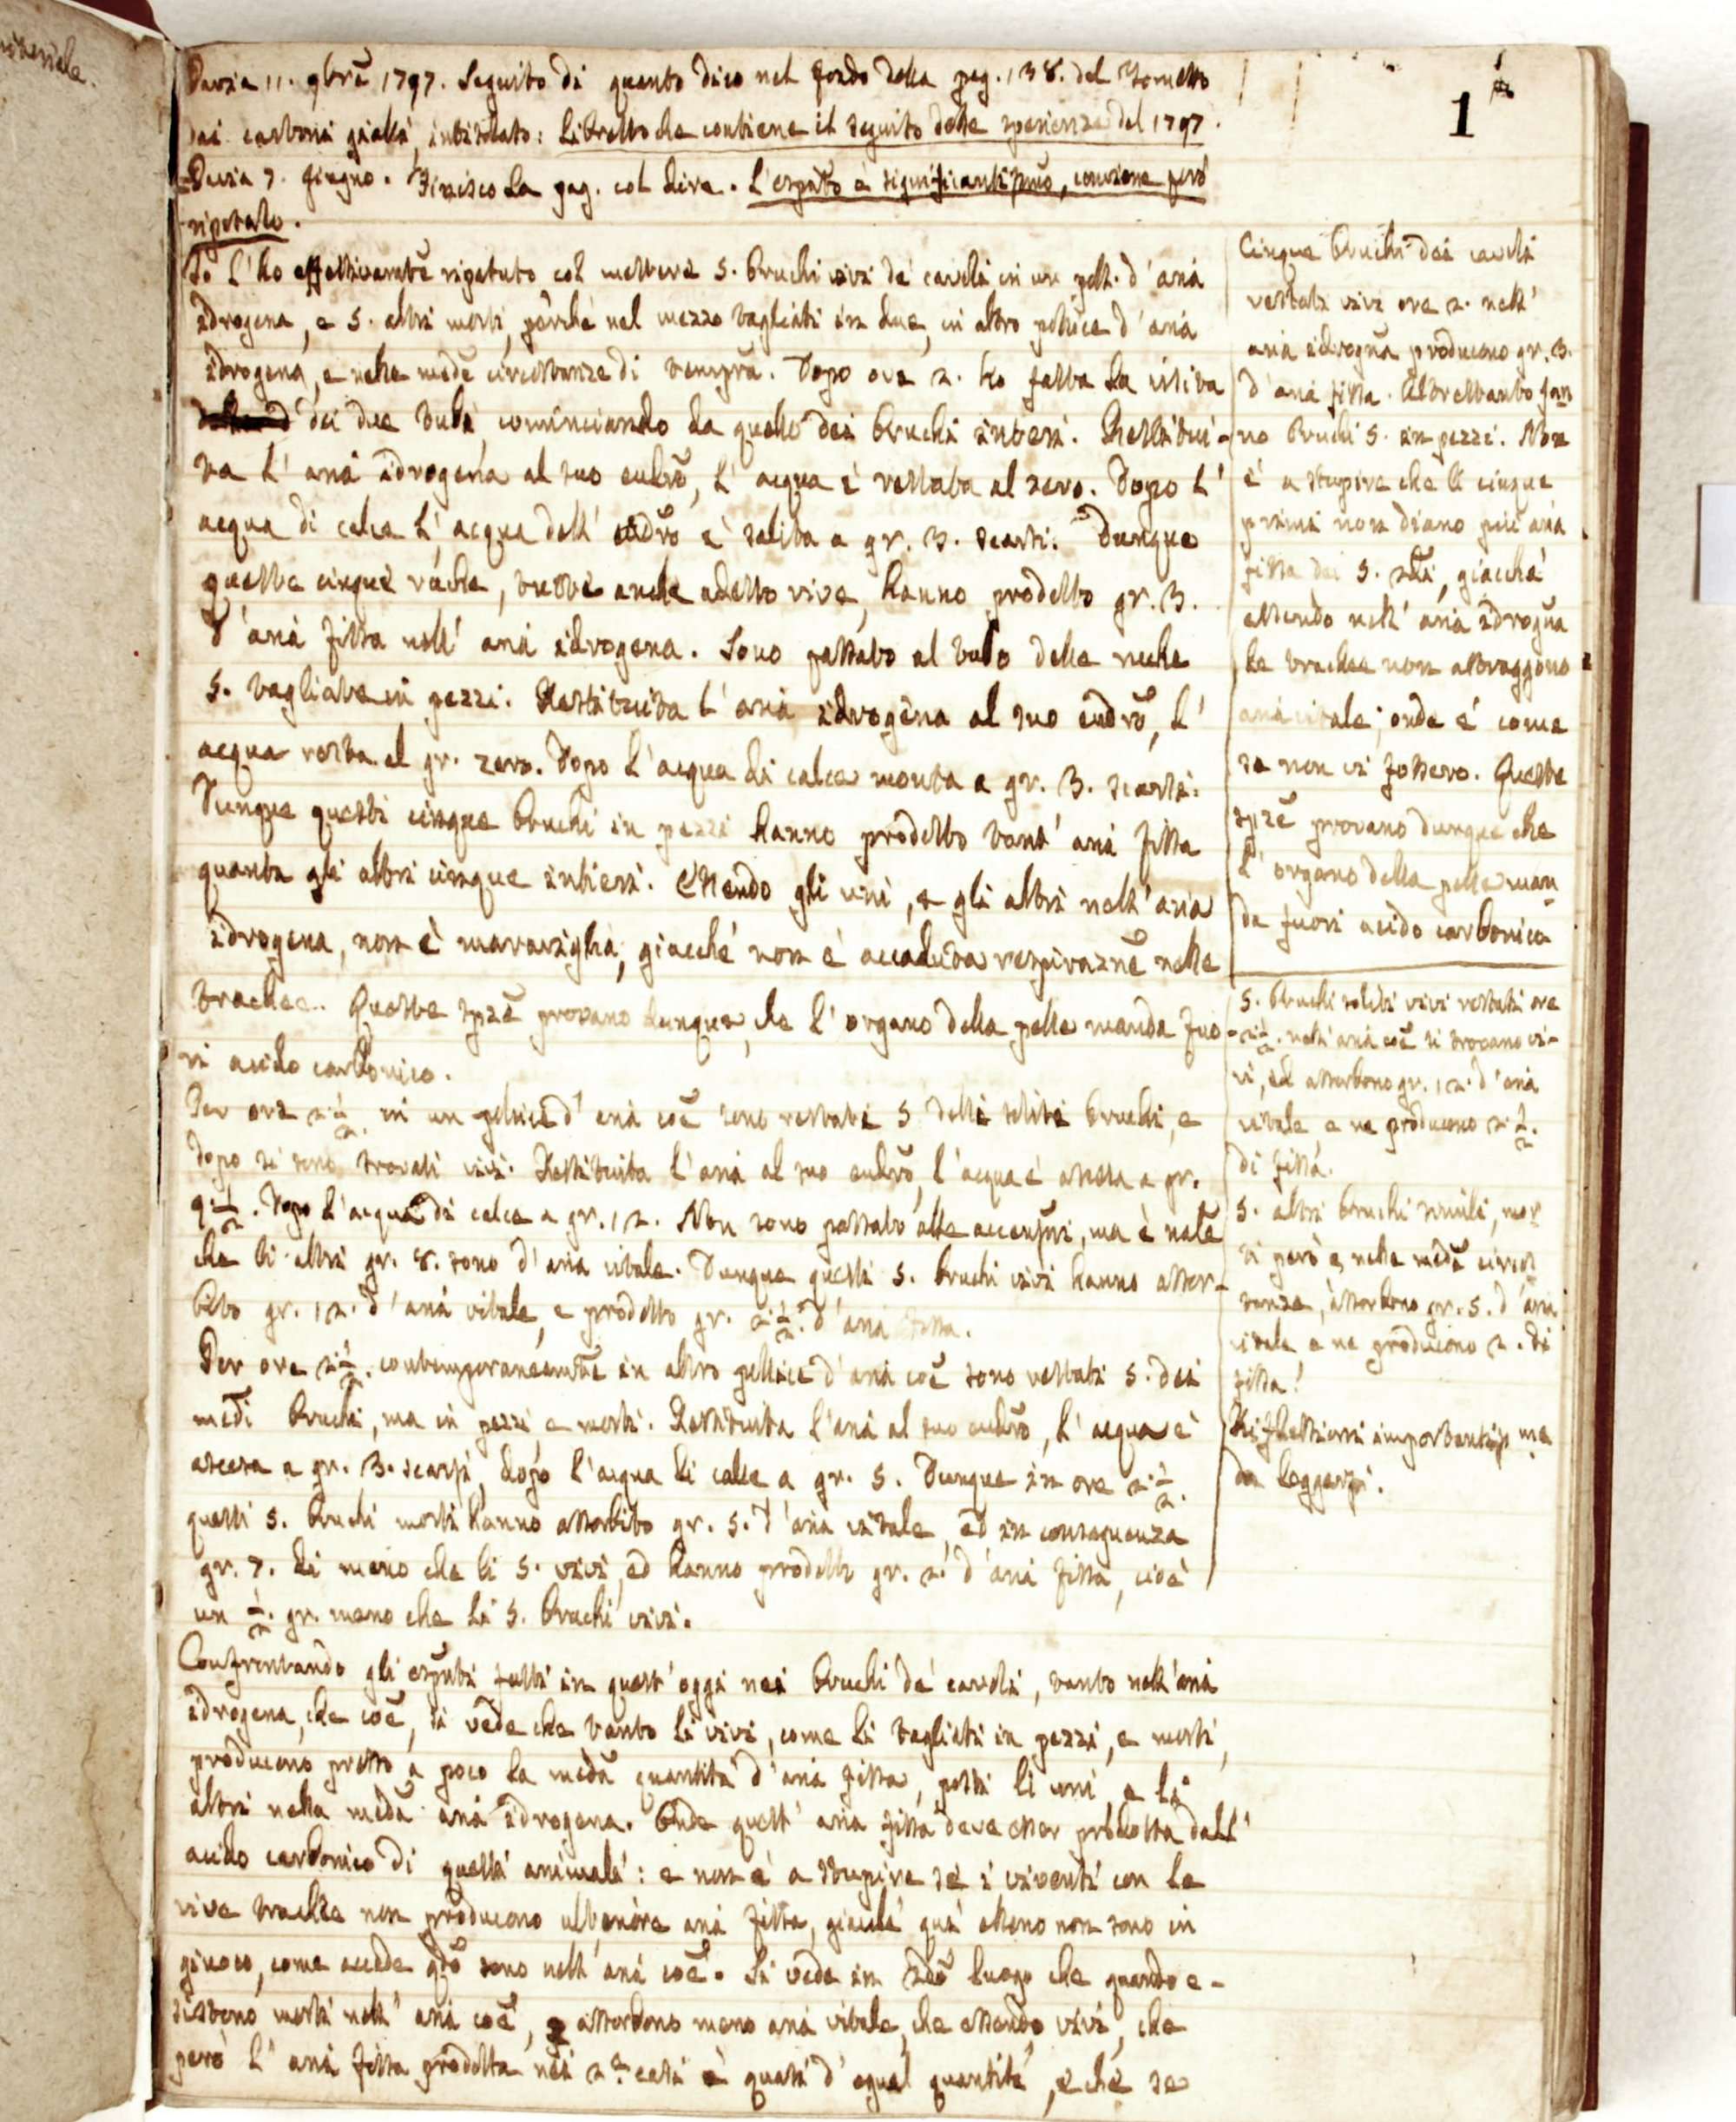 1
Pavia 11. 9bre 1797. Seguito di quanto dico nel fondo della pag. 138. del Tometto
dai cartoni gialli, intitolato: Libretto che contiene il seguito delle sperienze del 1797.
Pavia 7. Giugno. Finisco la pag. col dire. L'esptō è significantissimo, conviene però
ripeterlo.
Io l'ho effettivamtē ripetuto col mettere 5. bruchi vivi de' cavoli in un poll. d'aria
idrogena, e 5. altri morti, perchè nel mezzo tagliati in due, in altro pollice d'aria
idrogena, e nelle medē circostanze di tempra. Dopo ore 2. ho fatta la visita
dei due tubi, cominciando da quello dei bruchi interi. Restitui-
ta l'aria idrogena al suo eudrō, l'acqua è restata al zero. Dopo l'
acqua di calce l'acqua dell' eudrō è salita a gr. 3. scarsi. Dunque
queste cinque ruche, tutte anche adesso vive, hanno prodotto gr. 3.
d'aria fissa nell' aria idrogena. Sono passato al tubo delle ruche
5. tagliate in pezzi. Restituita l'aria idrogena al suo eudrō, l'
acqua resta al gr. zero. Dopo l'acqua di calce monta a gr. 3. scarsi.
Dunque questi cinque bruchi in pezzi hanno prodotto tant' aria fissa
quanta gli altri cinque intieri. Essendo gli uni, e gli altri nell' aria
idrogena, non è maraviglia, giacchè non è accaduta respiraznē nelle
trachee. Queste spzē provano dunque, che l'organo della pelle manda fuo-
ri acido carbonico.
Per ore 2 1/2. in un pollice d'aria coē sono restati 5 delli soliti bruchi, e
dopo si sono trovati vivi. Restituita l'aria al suo eudrō, l'acqua è ascesa a gr.
9 1/2. Dopo l'acqua di calce a gr. 12. Non sono passato alle accensni, ma è natlē
che li altri gr. 8. sono d'aria vitale. Dunque questi 5. bruchi vivi hanno assor-
bito gr. 12. d'aria vitale, e prodotto gr. 2 1/2. d'aria fissa.
Per ore 2 1/2. contemporaneamtē in altro pollice d'aria coē sono restati 5. dei
medi bruchi, ma in pezzi e morti. Restituita l'aria al suo eudrō, l'acqua è
ascesa a gr. 3. scarsi, dopo l'acqua di calce a gr. 5. Dunque in ore 2 1/2.
questi 5. bruchi morti hanno assorbito gr. 5. d'aria vitale, ed in conseguenza
gr. 7. di meno che li 5. vivi, ed hanno prodotto gr. 2. d'aria fissa, cioè
un 1/2. gr. meno che li 5. bruchi vivi.
Confrontando gli esptnti fatti in quest' oggi nei bruchi de' cavoli, tanto nell' aria
idrogena, che coē, si vede che tanto li vivi, come li tagliati in pezzi, e morti,
producono presso a poco la medā quantità d'aria fissa, posti li uni, e li
altri nella medā aria idrogena. Onde quest' aria fissa deve esser prodotta dall'
acido carbonico di questi animali: e non è a stupire se i viventi con le
vive trachee non producono ulteriore aria fissa, giacchè quì esseno non sono in
giuoco, come accade qdō sono nell' aria coē. Si vede in 2dō luogo che quando e-
sistono morti nell' aria coē, assorbono meno aria vitale, che essendo vivi, che
però l'aria fissa prodotta nei 2. casi è quasi d'egual quantità, e che se
Cinque bruchi dei cavoli
restati vivi ore 2. nell'
aria idrognā producono gr. 3.
d'aria fissa. Altrettanto fan
no bruchi 5. in pezzi. Non
è a stupire che li cinque
primi non diano più aria
fissa dei 5. 2di, giacchè
essendo nell' aria idrognā
le trachee non attraggono
aria vitale; onde è come
se non vi fossero. Queste
spzē provano dunque che
l'organo della pelle man
da fuori acido carbonico
5. bruchi soliti vivi restati ore
2 1/2. nell' aria coē si trovano vi-
vi, ed assorbono gr. 12. d'aria
vitale, e ne producono 2 1/2.
di fissa.
5. altri bruchi simili, mor
ti però e nelle medē circos
tanze, assorbono gr. 5. d'aria
vitale e ne producono 2. di
fissa!
Riflessioni importantissme
da leggersi.